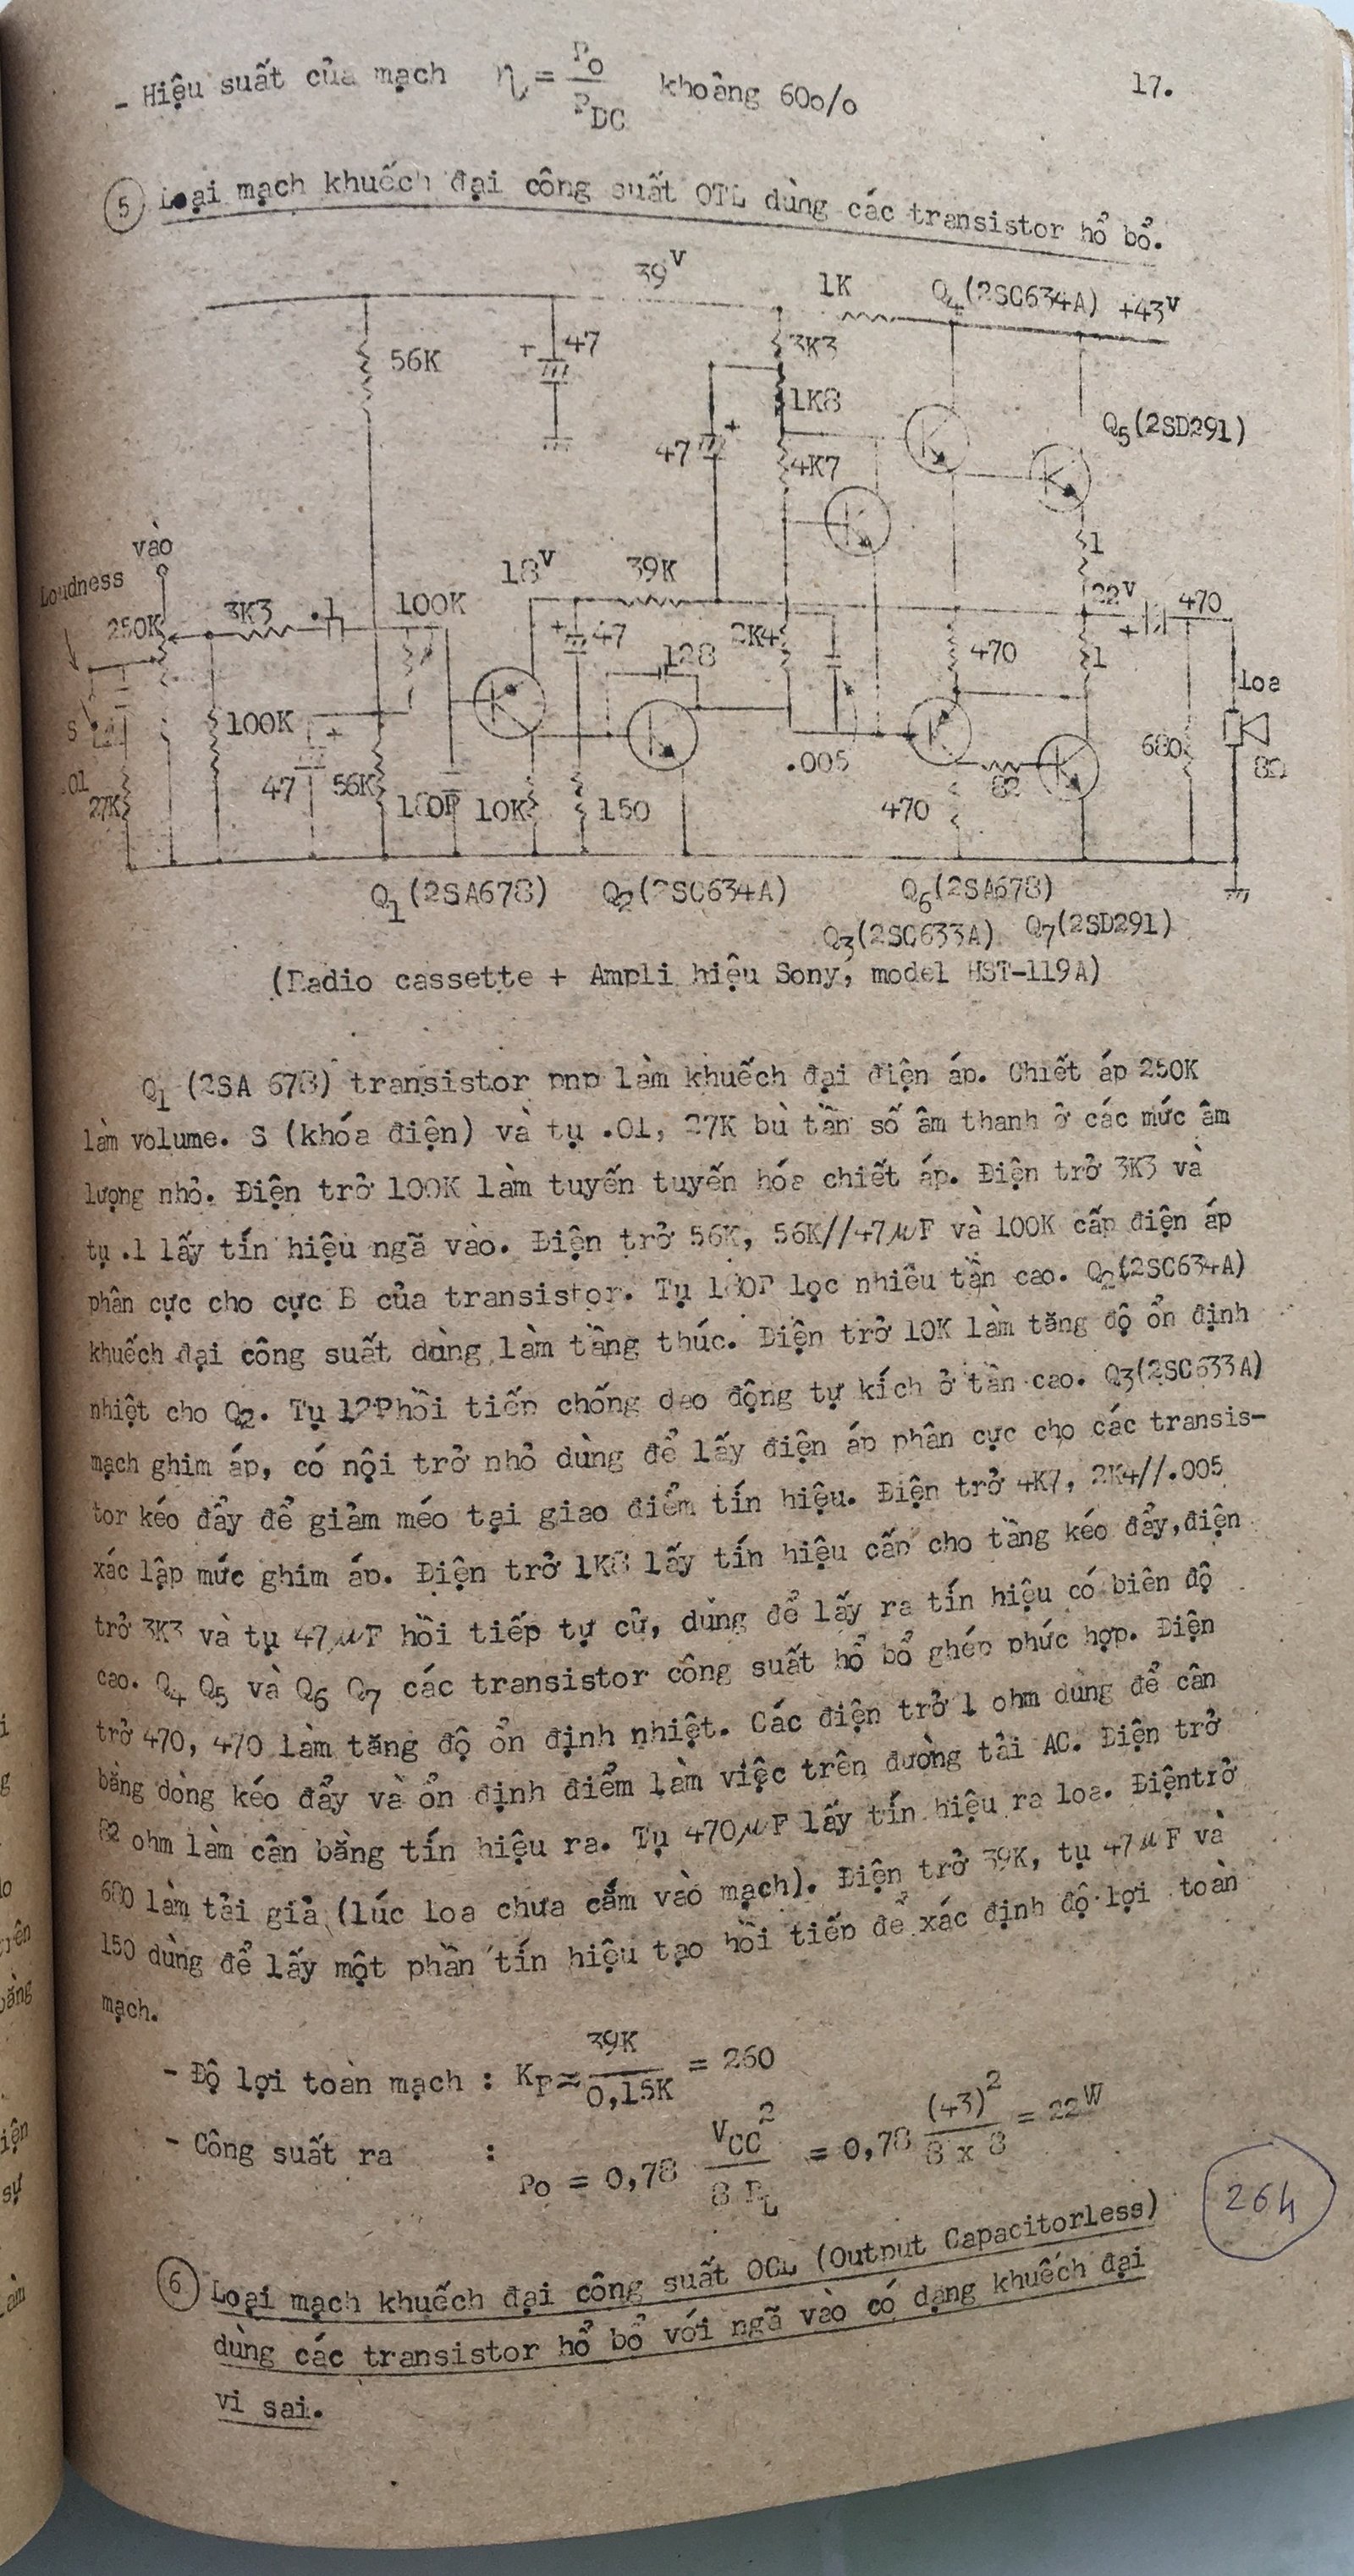 - Hiệu suất của mạch η = Po / PDC khoảng 60o/o
17.
5 Loại mạch khuếch đại công suất OTL dùng các transistor hổ bổ.
39V 1K Q4(2SC634A) +43V
56K + 47 3K3
1K8
47 + 4K7 Q5(2SD291)
vào
Loudness
18V 39K 1
250K 3K3 .1 100K + 47 2K4 22V + 470
128 470 1 Loa
S 100K + .005 680 8Ω
.01 27K 47 56K 10K 150 470 82
Q1(2SA678) Q2(2SC634A) Q6(2SA678)
Q3(2SC633A) Q7(2SD291)
(Radio cassette + Ampli hiệu Sony, model HST-119A)
Q1 (2SA 678) transistor pnp làm khuếch đại điện áp. Chiết áp 250K
làm volume. S (khóa điện) và tụ .01, 27K bù tần số âm thanh ở các mức âm
lượng nhỏ. Điện trở 100K làm tuyến tuyến hóa chiết áp. Điện trở 3K3 và
tụ .1 lấy tín hiệu ngã vào. Điện trở 56K, 56K//47µF và 100K cấp điện áp
phân cực cho cực B của transistor. Tụ lọc nhiễu tần cao. Q2(2SC634A)
khuếch đại công suất dùng làm tầng thúc. Điện trở 10K làm tăng độ ổn định
nhiệt cho Q2. Tụ 12P hồi tiếp chống dao động tự kích ở tần cao. Q3(2SC633A)
mạch ghim áp, có nội trở nhỏ dùng để lấy điện áp phân cực cho các transis-
tor kéo đẩy để giảm méo tại giao điểm tín hiệu. Điện trở 4K7, 2K4//.005
xác lập mức ghim áp. Điện trở 1K8 lấy tín hiệu cấp cho tầng kéo đẩy,điện
trở 3K3 và tụ 47µF hồi tiếp tự cử, dùng để lấy ra tín hiệu có biên độ
cao. Q4 Q5 và Q6 Q7 các transistor công suất hổ bổ ghép phức hợp. Điện
trở 470, 470 làm tăng độ ổn định nhiệt. Các điện trở 1 ohm dùng để cân
bằng dòng kéo đẩy và ổn định điểm làm việc trên đường tải AC. Điện trở
82 ohm làm cân bằng tín hiệu ra. Tụ 470µF lấy tín hiệu ra loa. Điệntrở
680 làm tải giả (lúc loa chưa cắm vào mạch). Điện trở 39K, tụ 47µF và
150 dùng để lấy một phần tín hiệu tạo hồi tiếp để xác định độ lợi toàn
mạch.
- Độ lợi toàn mạch : KP≈ 39K / 0,15K = 260
- Công suất ra : Po = 0,78 VCC2 / 8 RL = 0,78 (43)2 / 8 x 8 = 22W
264
6 Loại mạch khuếch đại công suất OCL (Output Capacitorless)
dùng các transistor hổ bổ với ngã vào có dạng khuếch đại
vi sai.